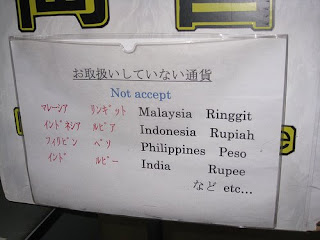 お取扱いしていない通貨
Not accept
マレーシア リンギット Malaysia Ringgit
インドネシア ルピア Indonesia Rupiah
フィリピン ペソ Philippines Peso
インド ルピー India Rupee
など etc...